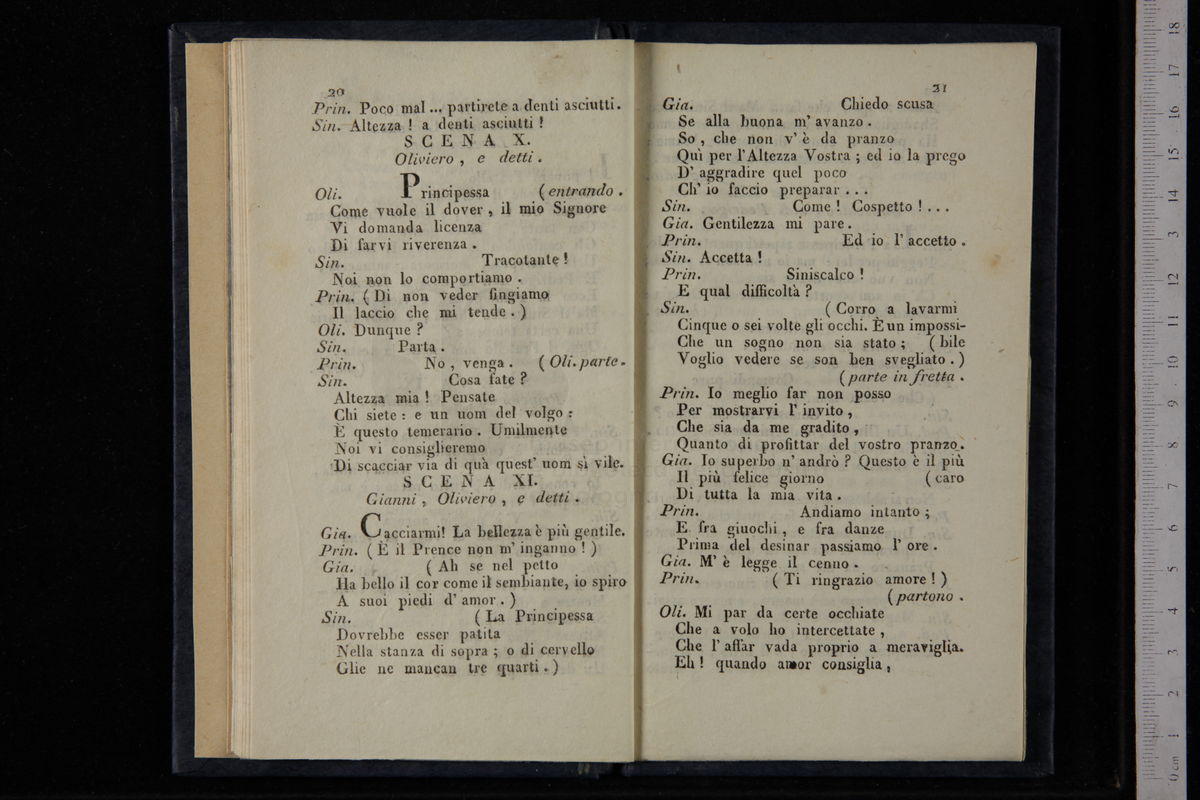 20
Prin. Poco mal ... partirete a denti asciutti.
Sin. Altezza ! a denti asciutti !
SCENA X.
Oliviero , e detti .
Oli. Principessa ( entrando .
Come vuole il dover , il mio Signore
Vi domanda licenza
Di farvi riverenza .
Sin. Tracotante !
Noi non lo comportiamo .
Prin. ( Di non veder fingiamo
Il laccio che mi tende . )
Oli. Dunque ?
Sin. Parta .
Prin. No , venga . ( Oli. parte .
Sin. Cosa fate ?
Altezza mia ! Pensate
Chi siete : e un uom del volgo :
È questo temerario . Umilmente
Noi vi consiglieremo
Di scacciar via di quà quest' uom sì vile.
SCENA XI.
Gianni , Oliviero , e detti .
Gia. Cacciarmi! La bellezza è più gentile.
Prin. ( È il Prence non m' inganno ! )
Gia. ( Ah se nel petto
Ha bello il cor come il sembiante, io spiro
A suoi piedi d' amor . )
Sin. ( La Principessa
Dovrebbe esser patita
Nella stanza di sopra ; o di cervello
Glie ne mancan tre quarti . )
21
Gia. Chiedo scusa
Se alla buona m' avanzo .
So , che non v' è da pranzo
Quì per l'Altezza Vostra ; ed io la prego
D' aggradire quel poco
Ch' io faccio preparar . . .
Sin. Come ! Cospetto ! . . .
Gia. Gentilezza mi pare .
Prin. Ed io l' accetto .
Sin. Accetta !
Prin. Siniscalco !
E qual difficoltà ?
Sin. ( Corro a lavarmi
Cinque o sei volte gli occhi. È un impossi-
Che un sogno non sia stato ; ( bile
Voglio vedere se son ben svegliato . )
( parte in fretta .
Prin. Io meglio far non posso
Per mostrarvi l' invito ,
Che sia da me gradito ,
Quanto di profittar del vostro pranzo.
Gia. Io superbo n' andrò ? Questo è il più
Il più felice giorno ( caro
Di tutta la mia vita .
Prin. Andiamo intanto ;
E fra giuochi , e fra danze
Prima del desinar passiamo l' ore .
Gia. M' è legge il cenno .
Prin. ( Ti ringrazio amore ! )
( partono .
Oli. Mi par da certe occhiate
Che a volo ho intercettate ,
Che l' affar vada proprio a meraviglia.
Eh ! quando amor consiglia ,
0 cm 1 2 3 4 5 6 7 8 9 10 11 12 13 14 15 16 17 18